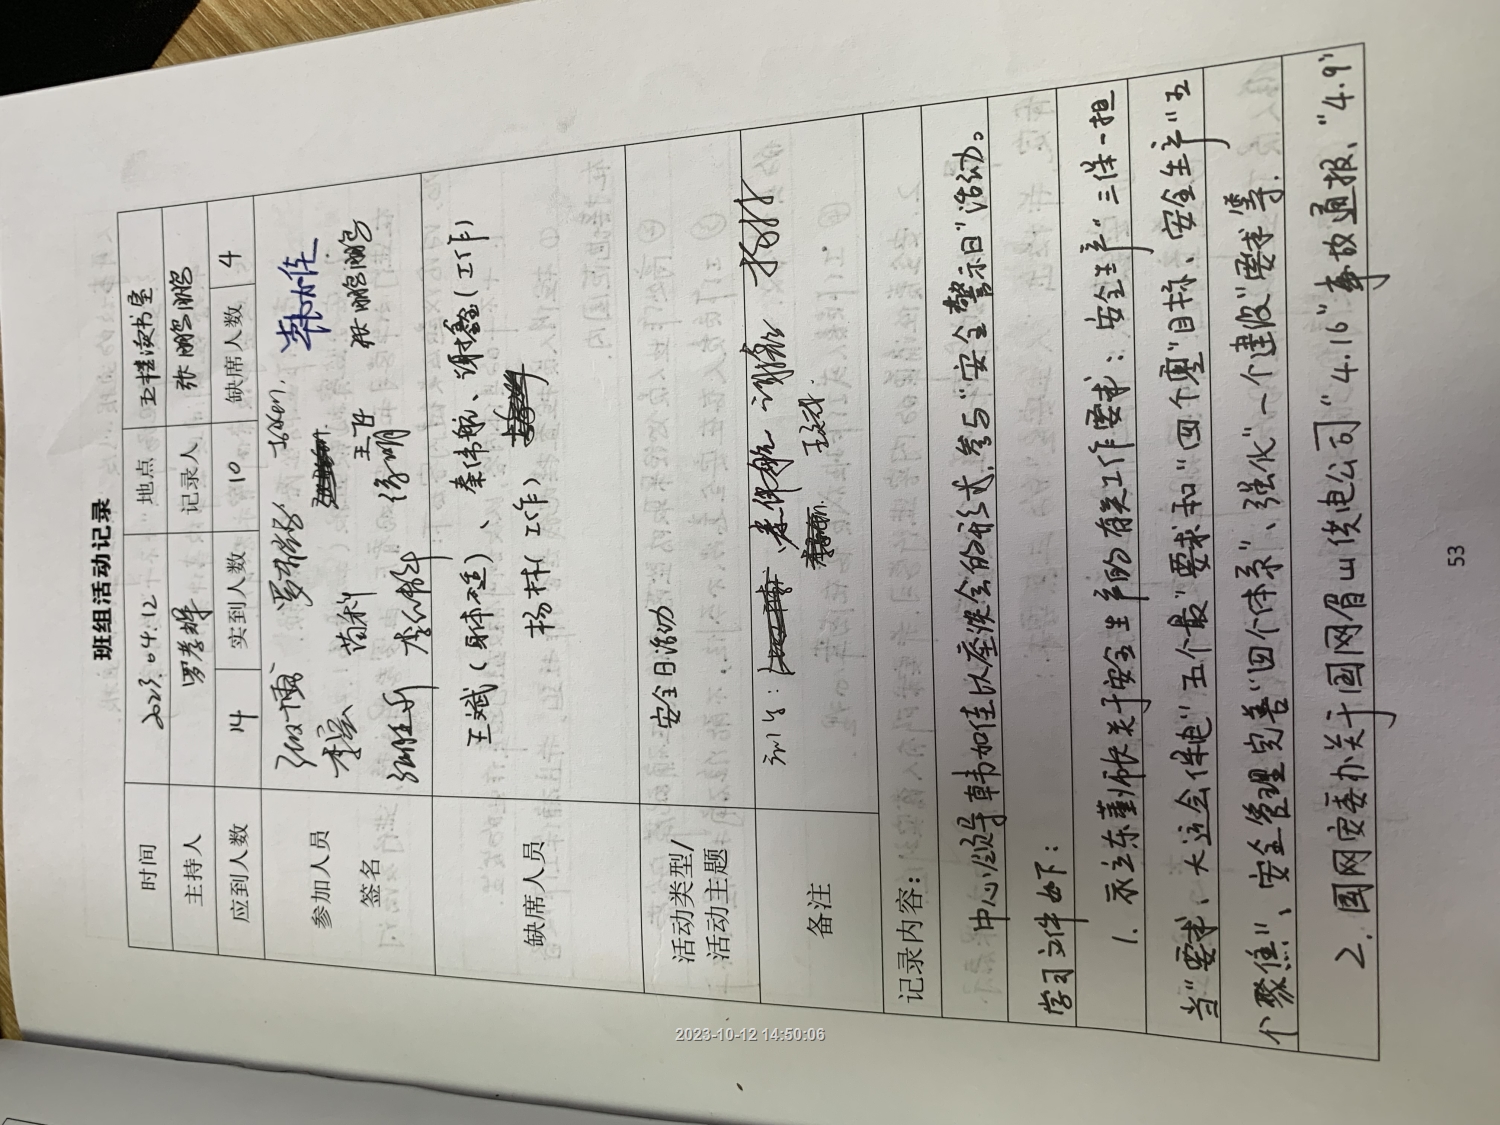 班组活动记录
时间 2023.04.12 地点 五楼会议室
主持人 罗孝辉 记录人 张鹏鹏
应到人数 14 实到人数 10 缺席人数 4
参加人员
签名
张鹏鹏
缺席人员 王斌(身体不适)、秦伟航、谢鑫(工作)
杨林(工作)
活动类型/
活动主题 安全日活动
备注 秦伟航
记录内容:
中心领导韩加佳以座谈会的形式,参与“安全警示日”活动。
学习文件如下:
1. 示立东董师帐关于安全生产的有关工作要求:安全生产“三保一担
当”要求、大运会保电“五个最”要求和“四个零”目标、安全生产“五
个聚焦”、安全管理完善“四个体系”、强化“一个建设”要求等.
2. 国网安委办关于国网眉山供电公司“4.16”事故通报、“4.9”
53
2023-10-12 14:50:06